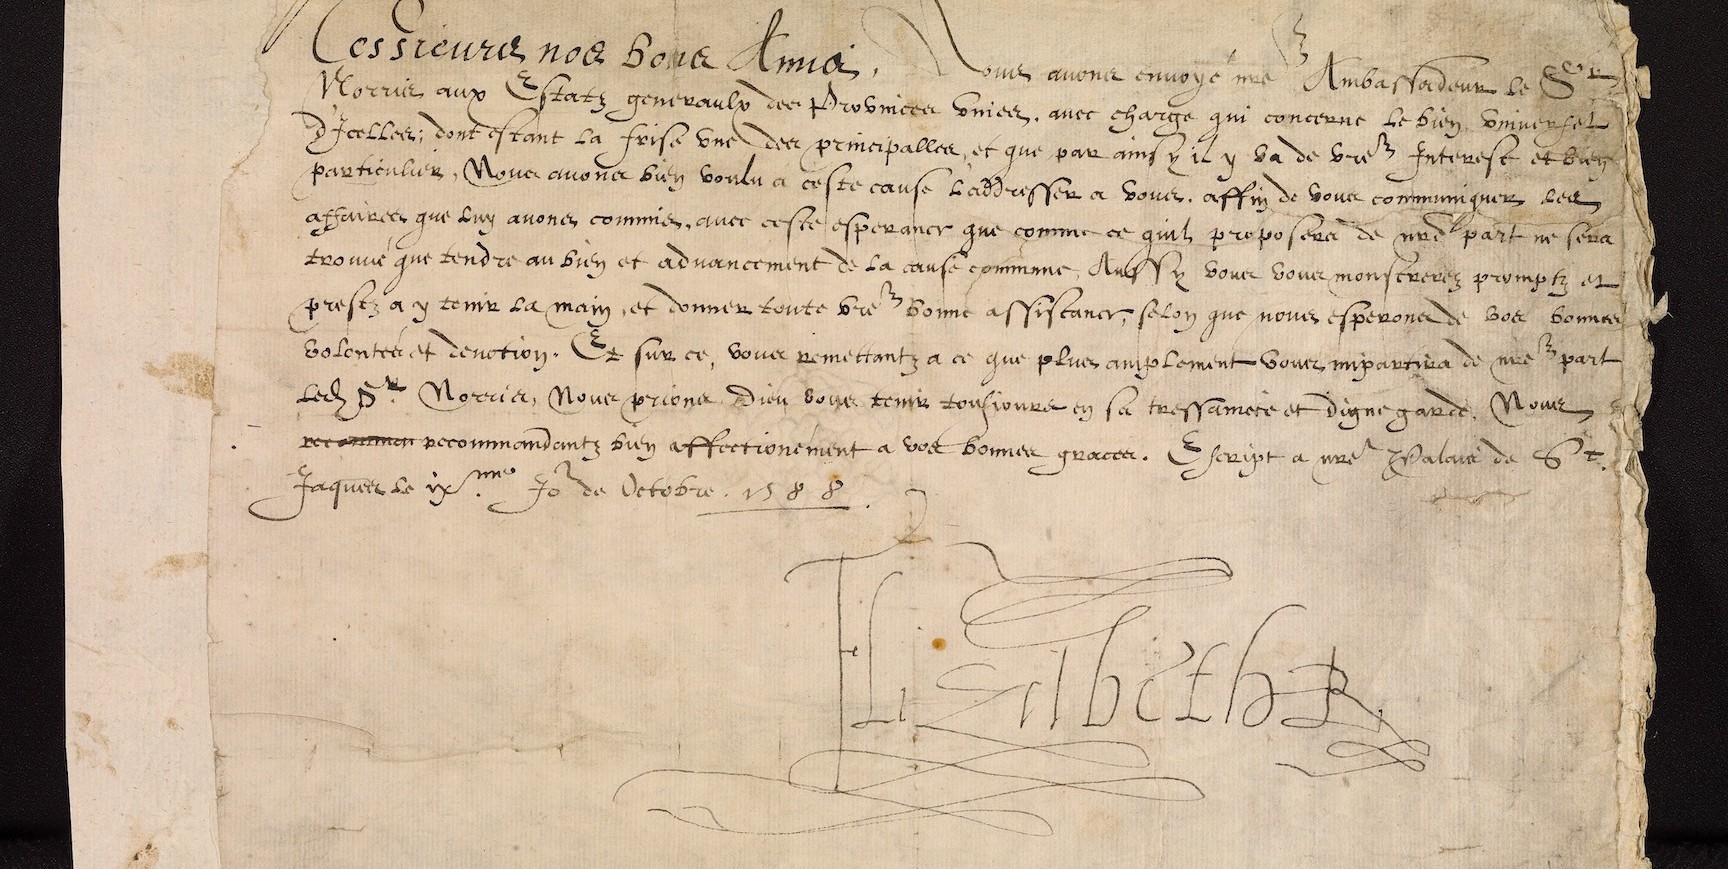 Messieurs noz bons Amis, Nous avons envoyé nre Ambassadeur le Sor
Norris aux Estatz generaulx des Provinces unies, avec charge qui concerne le bien universel
d'Icelles; dont estant la frise une des principalles, et que par ainsy il y va de vre Interest et bien
particulier, Nous avons bien voulu a ceste cause l'addresser a vous, affin de vous communiquer les
affaires que luy avons commis, avec ceste esperance que comme ce quil proposera de nre part ne sera
trouvé que tendre au bien et advancement de la cause commune, Aussy vous vous monstrerez promptz et
prestz a y tenir la main, et donner toute vre bonne assistance, selon que nous esperons de voz bonnes
volontés et devotion. Et sur ce, vous remettantz a ce que plus amplement vous impartira de nre part
led Sr Norris, Nous prions Dieu vous tenir tousjours en sa tressaincte et digne garde. Nous
recommandantz bien affectionément a voz bonnes graces. Escript a nre Palais de St.
Jaques le ixme Jor de Octobre. 1588.
Elizabeth R